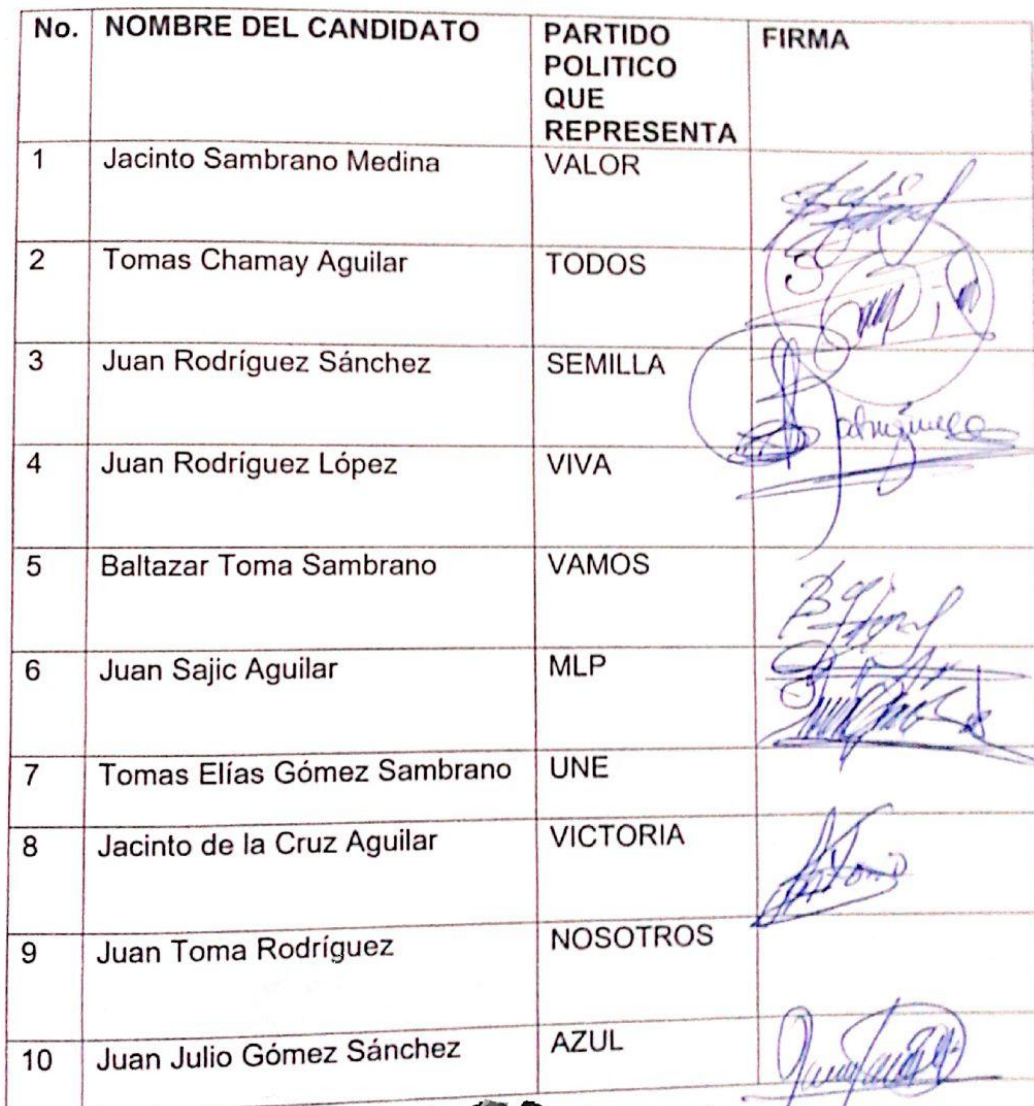 No. NOMBRE DEL CANDIDATO PARTIDO POLITICO QUE REPRESENTA FIRMA
1 Jacinto Sambrano Medina VALOR
2 Tomas Chamay Aguilar TODOS
3 Juan Rodríguez Sánchez SEMILLA
4 Juan Rodríguez López VIVA
5 Baltazar Toma Sambrano VAMOS
6 Juan Sajic Aguilar MLP
7 Tomas Elías Gómez Sambrano UNE
8 Jacinto de la Cruz Aguilar VICTORIA
9 Juan Toma Rodríguez NOSOTROS
10 Juan Julio Gómez Sánchez AZUL